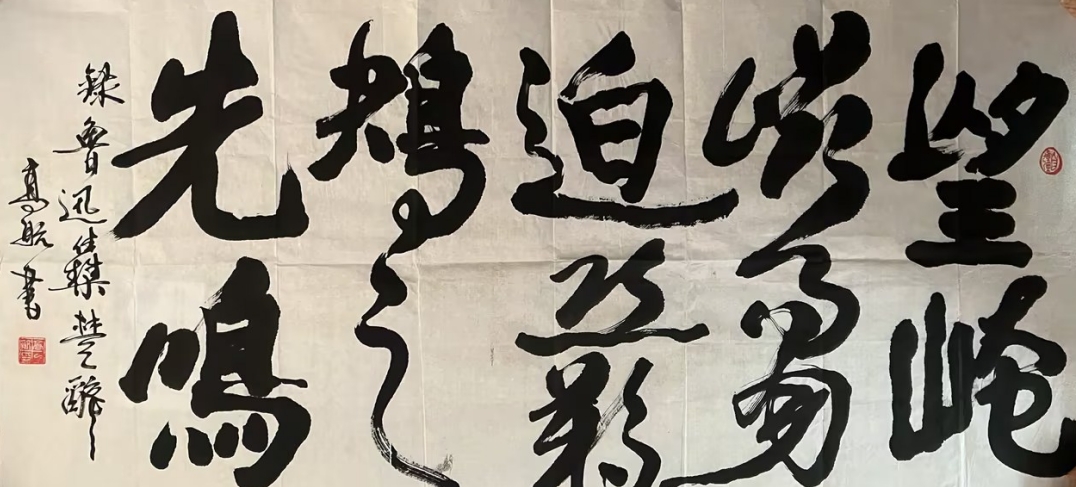 望崦
嵫而勿
迫恐鵜
鴂之
先鳴
錄魯迅集楚辭
高航書